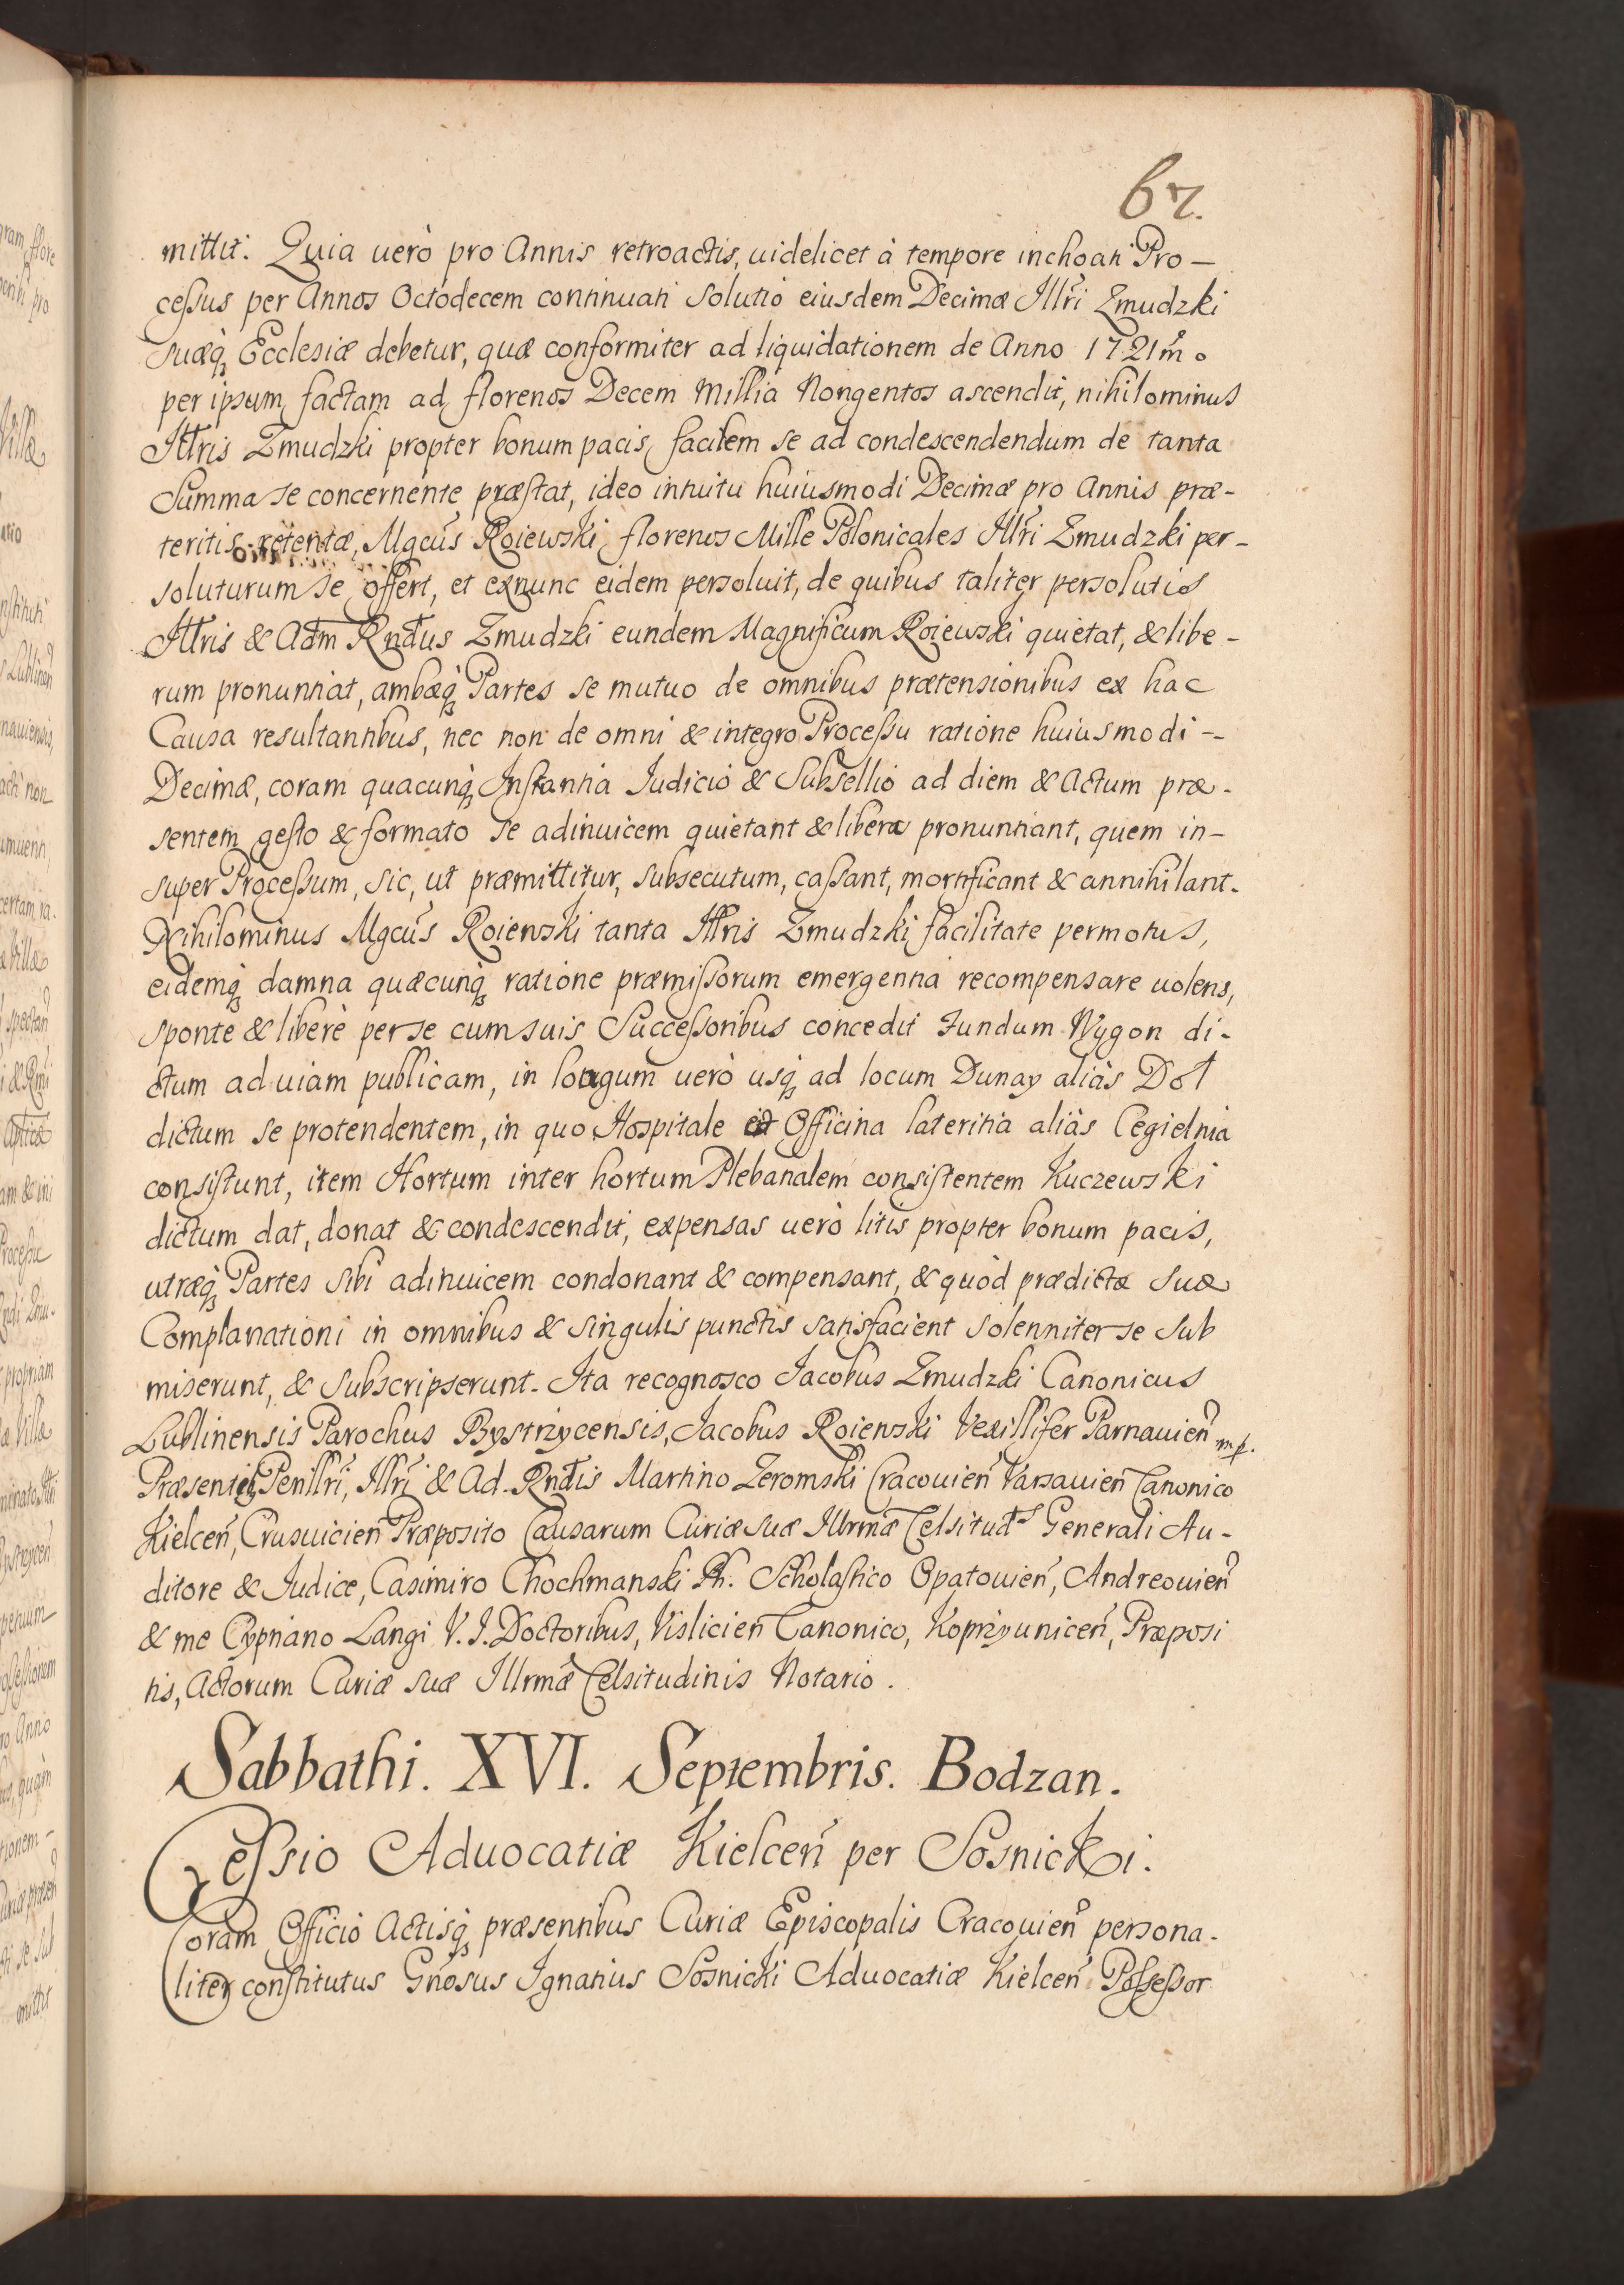 67.
mittit. Quia uerò pro Annis retroactis, uidelicet à tempore inchoati Pro-
cessus per Annos Octodecem continuati Solutio eiusdem Decimæ Illri Zmudzki
suæq Ecclesiæ debetur, quæ conformiter ad liquidationem de Anno 1721mo
per ipsum factam ad florenos Decem Millia Nongentos ascendit, nihilominus
Illris Zmudzki propter bonum pacis facilem se ad condescendendum de tanta
Summa se concernente præstat, ideo intuitu huiusmodi Decimæ pro Annis præ-
teritis retentæ, Mgcus Roiewski florenos Mille Polonicales Illri Zmudzki per-
soluturum se offert, et exnunc eidem persoluit, de quibus taliter persolutis
Illris & Adm Rndus Zmudzki eundem Magnificum Roiewski quietat, & libe-
rum pronuntiat, ambæq Partes se mutuo de omnibus prætensionibus ex hac
Causa resultantibus, nec non de omni & integro Processu ratione huiusmodi -
Decimæ, coram quacunq Instantia Iudicio & Subsellio ad diem & Actum præ-
sentem gesto & formato se adinuicem quietant & libera pronuntiant, quem in-
super Processum, sic, ut præmittitur, subsecutum, cassant, mortificant & annihilant.
Nihilominus Mgcus Roiewski tanta Illris Zmudzki facilitate permotus,
eidemq damna quæcunq ratione præmissorum emergentia recompensare uolens,
sponte & liberè per se cum suis Successoribus concedit Fundum Wygon di-
ctum ad uiam publicam, in longum uerò usq ad locum Dunay aliàs Dół
dictum se protendentem, in quo Hospitale et Officina lateritia aliàs Cegielnia
consistunt, item Hortum inter hortum Plebanalem consistentem Kuczewski
dictum dat, donat & condescendit, expensas uerò litis propter bonum pacis,
utræq Partes sibi adinuicem condonant & compensant, & quòd prædictæ suæ
Complanationi in omnibus & singulis punctis satisfacient solenniter se sub
miserunt, & subscripserunt. Ita recognosco Jacobus Zmudzki Canonicus
Lublinensis Parochus Bystrzycensis, Jacobus Roiewski Vexillifer Parnauien mp.
Præsentib Penllri, Illri & Ad. Rndis Martino Zeromski Cracouien Varsauien Canonico
Kielcen, Crusuicien Præposito Causarum Curiæ suæ Illrmæ Celsituds Generali Au-
ditore & Iudice, Casimiro Chochmanski Ph. Scholastico Opatouien, Andreouien
& me Cypriano Langi V. I. Doctoribus, Vislicien Canonico, Koprzyunicen, Præposi
tis, Actorum Curiæ suæ Illrmæ Celsitudinis Notario.
Sabbathi. XVI. Septembris. Bodzan.
Cessio Aduocatiæ Kielcen per Sosnicki.
Coram Officio Actisq præsentibus Curiæ Episcopalis Cracouien persona-
liter constitutus Gnosus Ignatius Sosnicki Aduocatiæ Kielcen Possessor